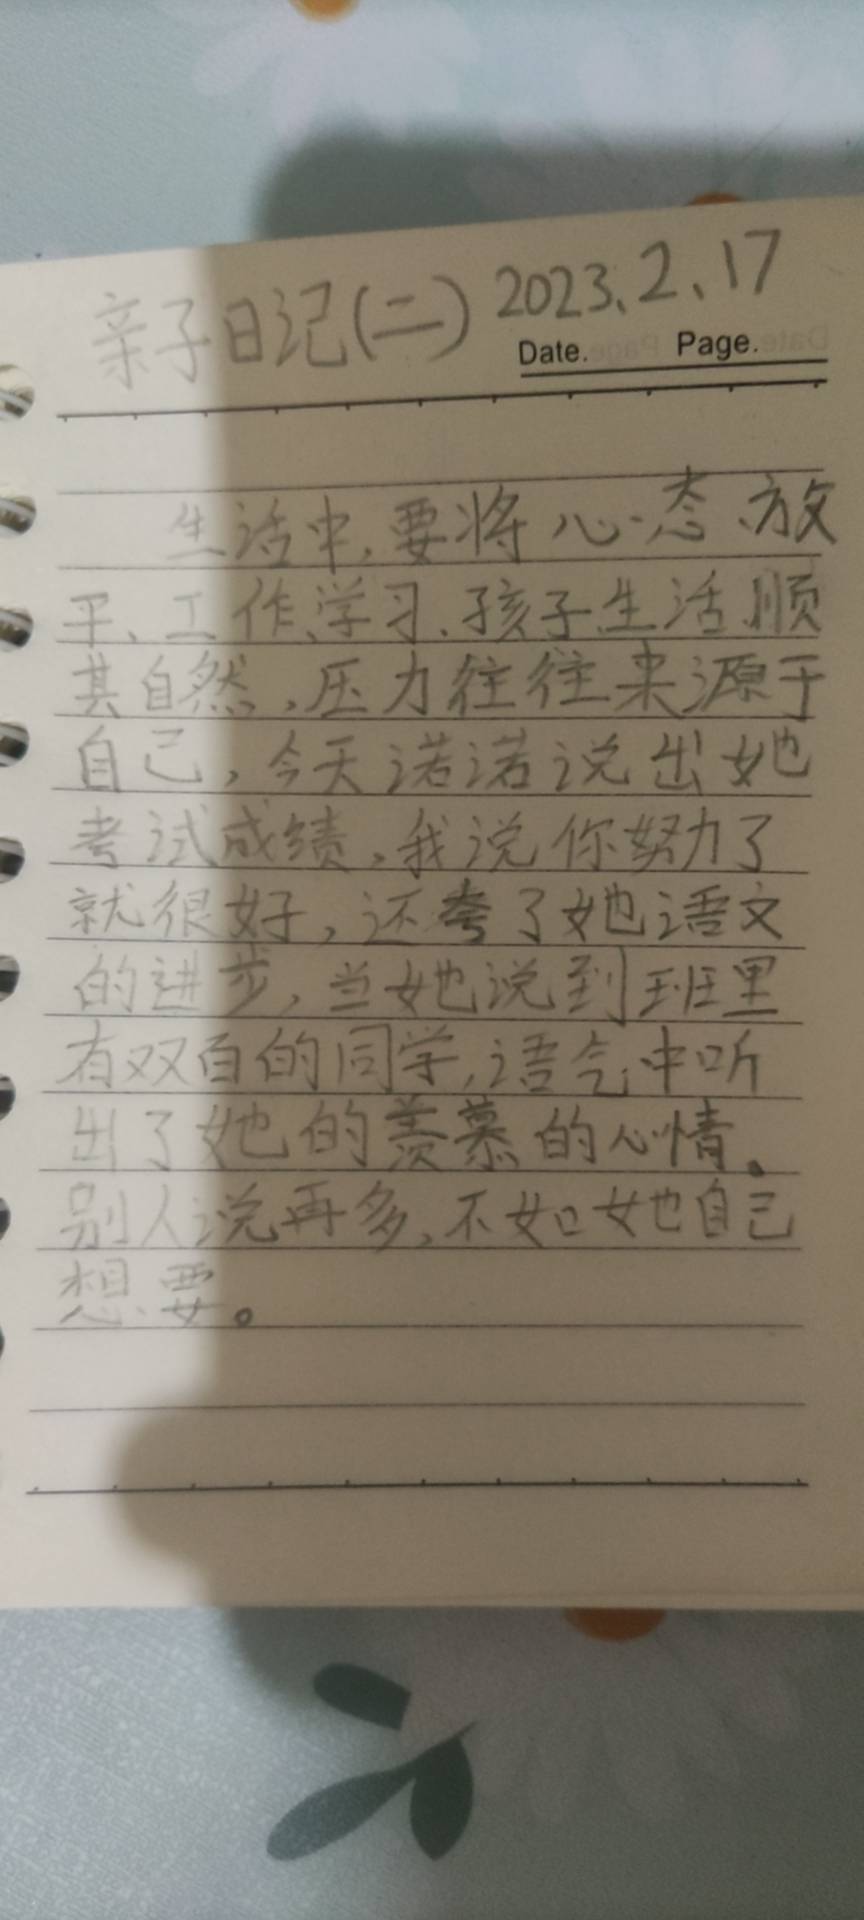 亲子日记(二) 2023.2.17
Date. Page.
生活中,要将心态放
平、工作、学习、孩子生活顺
其自然,压力往往来源于
自己,今天诺诺说出她
考试成绩,我说你努力了
就很好,还夸了她语文
的进步,当她说到班里
有双百的同学,语气中听
出了她的羡慕的心情。
别人说再多,不如她自己
想要。